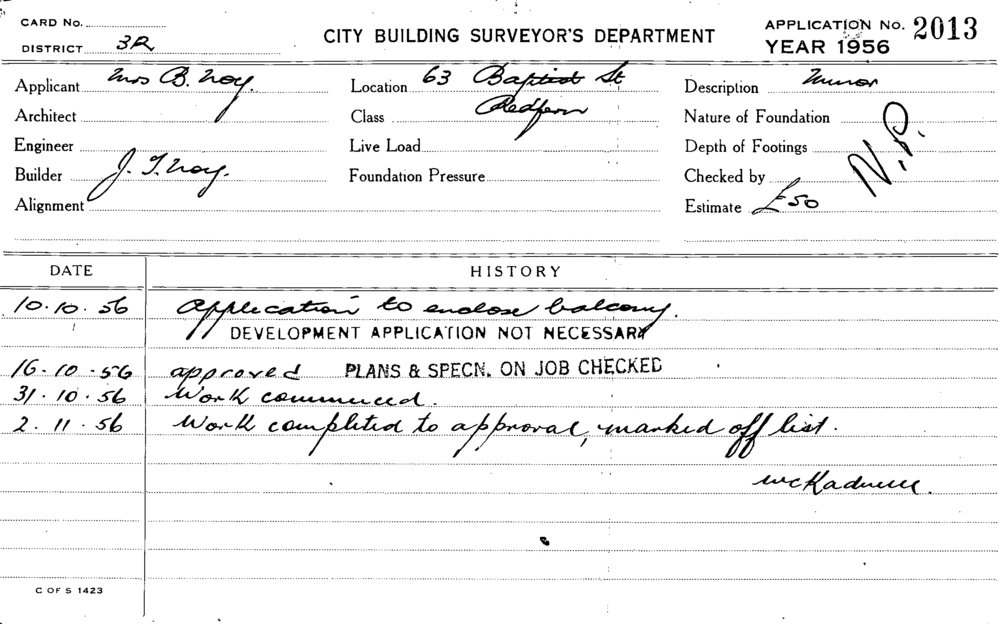 CARD No.
DISTRICT 3R
CITY BUILDING SURVEYOR'S DEPARTMENT
APPLICATION No. 2013
YEAR 1956
Applicant Mrs B. Noy.
Location 63 Baptist St
Redfern
Description Minor
Architect
Class
Nature of Foundation
Engineer
Live Load
Depth of Footings
Builder J. T. Noy.
Foundation Pressure
Checked by
N.P.
Alignment
Estimate £50
DATE HISTORY
10.10.56 Application to enclose balcony.
DEVELOPMENT APPLICATION NOT NECESSARY
16.10.56 approved PLANS & SPECN. ON JOB CHECKED
31.10.56 Work commenced.
2.11.56 Work completed to approval, marked off list.
C OF S 1423